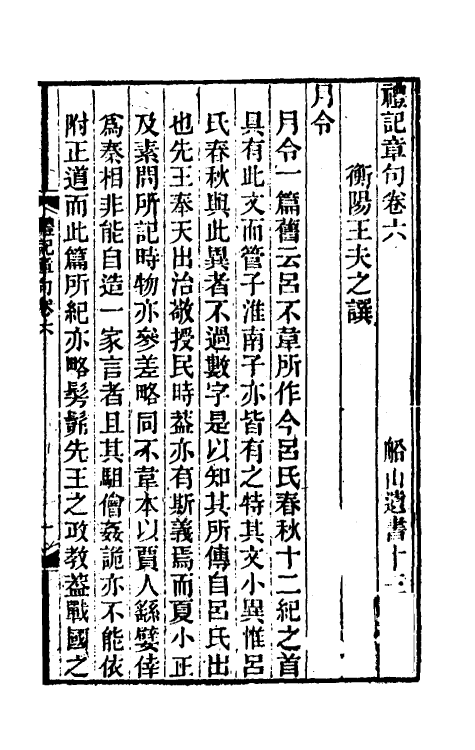 禮記章句卷六 船山遺書十三
衡陽王夫之譔
月令
月令一篇舊云呂不韋所作今呂氏春秋十二紀之首
具有此文而管子淮南子亦皆有之特其文小異惟呂
氏春秋與此異者不過數字是以知其所傳自呂氏出
也先王奉天出治敬授民時葢亦有斯義焉而夏小正
及素問所記時物亦參差略同不韋本以賈人繇嬖倖
爲秦相非能自造一家言者且其駔儈姦詭亦不能依
附正道而此篇所紀亦略髣髴先王之政教葢戰國之
禮記章句卷六 一